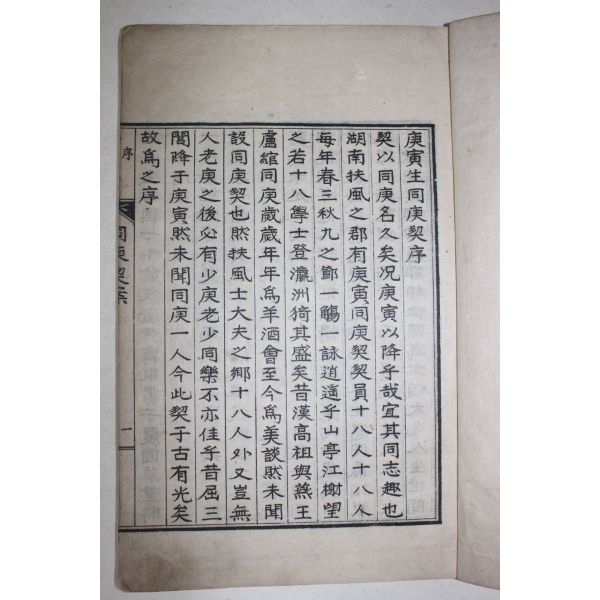 庚寅生同庚契序
契以同庚名久矣况庚寅以降乎哉宜其同志趣也
湖南扶風之郡有庚寅同庚契契員十八人十八人
每年春三秋九之節一觴一詠逍遥乎山亭江榭望
之若十八學士登瀛洲猗其盛矣昔漢高祖與燕王
盧綰同庚歲歲年年爲羊酒會至今爲美談然未聞
設同庚契也然扶風士大夫之鄉十八人外又豈無
人老庚之後必有少庚老少同樂不亦佳乎昔屈三
閭降于庚寅然未聞同庚一人今此契于古有光矣
故爲之序
序
同庚契案
一